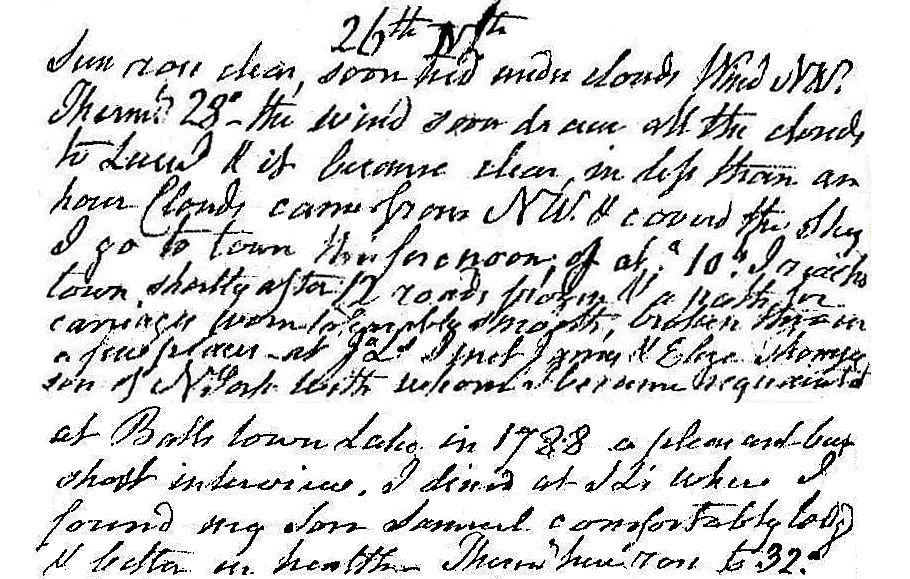 26th
Sun rose clear, soon hid under clouds Wind NW.
Therm.r 28° - the wind soon drove all the clouds
to & it became clear, in less than an
hour Clouds came from NW. & coverd the Sky
I go to town this forenoon, off at 10. I reach'd
town shortly after 12 roads frozen & a path for
carriages worn tolerably smooth, broken thro in
a few places - at I met James & Eliza Thomp
son of N York with whom I became acquainted
at Balls town Lake in 1788 a pleasant but
short interview. I dined at where I
found my Son Samuel comfortably lodg'd
& better in health - Therm.r here rose to 32.°